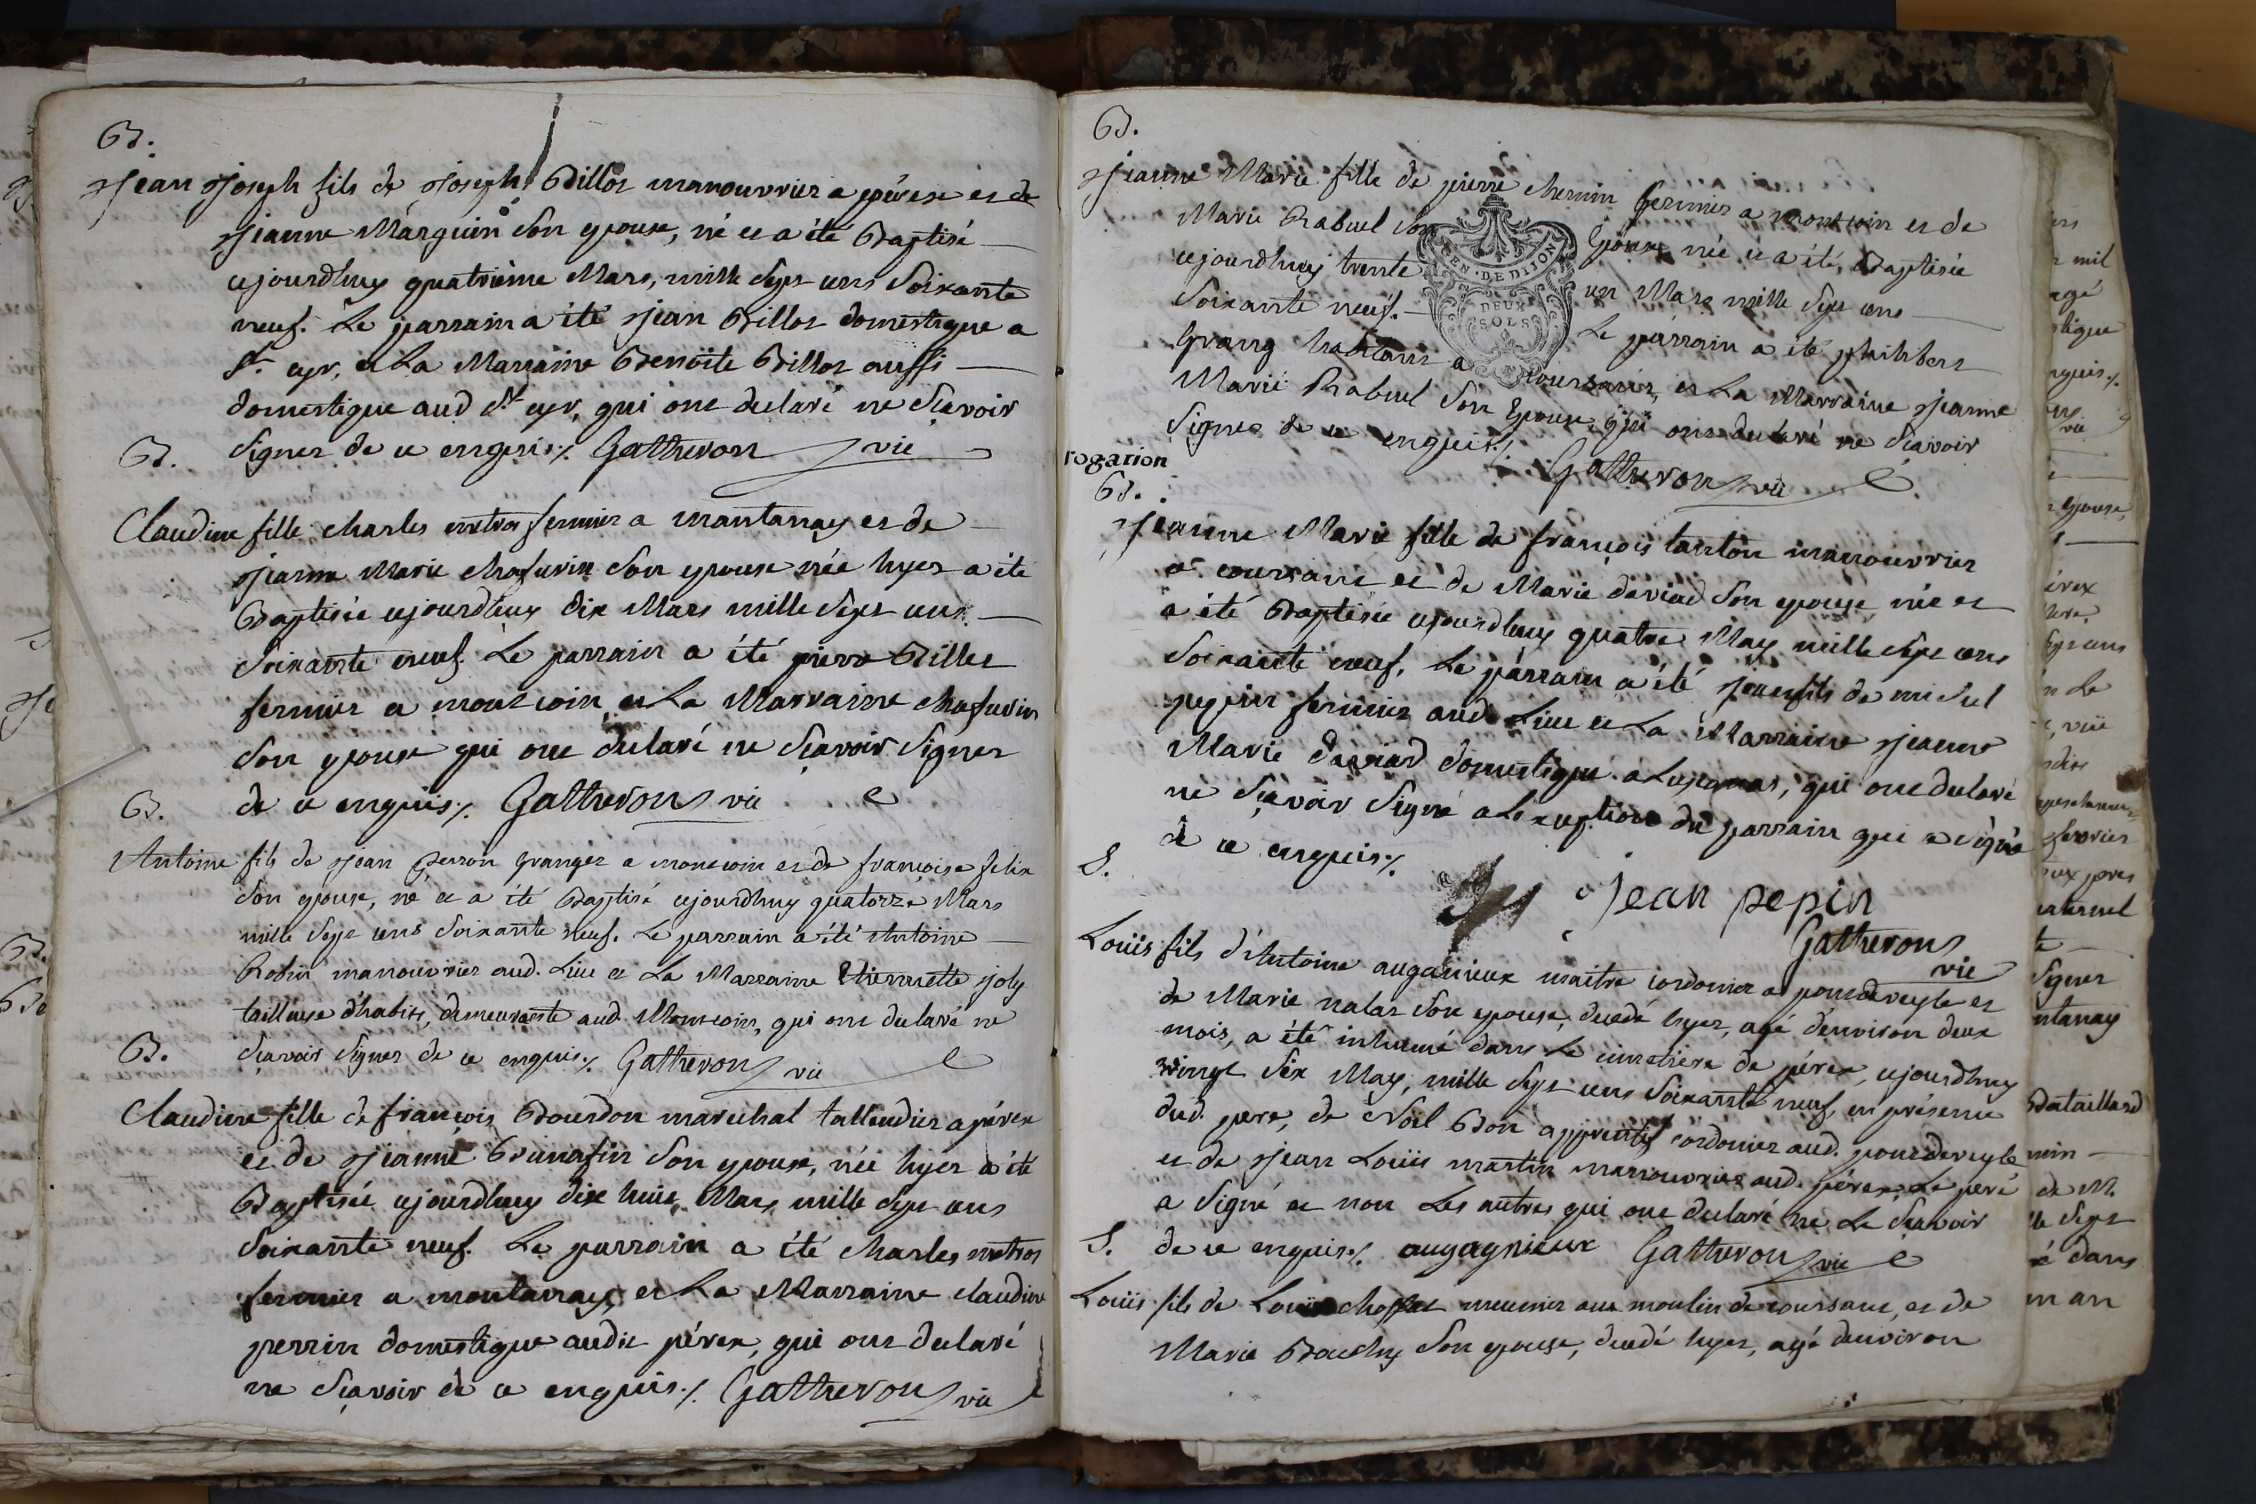 B.
Jean Joseph fils de Joseph Billot manouvrier a pérex et de
Jeanne Marguin son epouse, né et a été Baptisé
cejourdhuy quatriéme Mars, mille sept cens soixante
neuf. Le parrain a été Jean Billot domestique a
St. cyr, et La Marraine Benoite Billot aussi
domestique aud St cyr, qui ont declaré ne sçavoir
B. signer de ce enquis ./. Gatheron vic
Claudine fille charles metras fermier a mantanay et de
Jeanne Marie chafurin son epouse née hyer a été
Baptisée cejourdhuy dix Mars mille sept cens
soixante neuf. Le parrain a été pierre Billet
fermier a montcoin et La Marraine chafurin
son epouse qui ont declaré ne sçavoir signer
B. de ce enquis ./. Gatheron vic
Antoine fils de Jean perron granger a montcoin et de françoise felix
son epouse, né et a été Baptisé cejourdhuy quatorze Mars
mille sept cens soixante neuf. Le parrain a été Antoine
Robin manouvrier aud. Lieu et La Marraine Etiennette Joly
tailleuse d'habits, demeurante aud. Montcoin, qui ont declaré ne
B. sçavoir signer de ce enquis ./. Gatheron vic
Claudine fille de françois Bourdon marechal tallendier a pérex
et de Jeanne son epouse, née hyer a été
Baptisée cejourdhuy dix huit Mars mille sept cens
soixante neuf. Le parrain a été charles metras
fermier a montanay, et La Marraine claudine
perrin domestique audit pérex, qui ont declaré
ne sçavoir de ce enquis ./. Gatheron vic
B.
Jeanne Marie fille de pierre chernin fermier a montcoin et de
Marie Rabuel son Epouse née et a été Baptisée
cejourdhuy trente un Mars mille sept cens
soixante neuf. Le parrain a été philibert
Grang habitant a coursant, et La Marraine Jeanne
Marie Rabuel son Epouse, qui ont declaré ne sçavoir
signer de ce enquis ./. Gatheron vic
GEN. DE DIJON
DEUX
SOLS
rogation
B.
Jeanne Marie fille de françois tanton manouvrier
a coursant et de Marie daviad son epouse née et
a été Baptisée cejourdhuy quatre May mille sept cens
soixante neuf. Le parrain a été Jean fils de michel
pepin fermier aud. Lieu et La Marraine Jeanne
Marie daviad domestique a qui ont declaré
ne sçavoir signé a Lexeption du parrain qui a signé
S. de ce enquis ./.
Jean pepin
Gatheron
vic
Louis fils d'Antoine augagnieux maitre cordonier a pontdeveyle et
de Marie nalar son epouse, decedé hyer, agé d'environ deux
mois, a été inhumé dans Le cimetiere de pérex, cejourdhuy
vingt six May, mille sept cens soixante neuf, en présence
dud. pere, de Noël Bon apprentif cordonier aud. pontdeveyle
et de Jean Louis martin manouvrier aud. pérex, Le peré
a signé et non Les autres qui ont declaré ne Le sçavoir
S. de ce enquis ./. augagnieux Gatheron vic
Louis fils de Louis meunier au moulin de coursant, et de
Marie Bouchy son epouse, decedé hyer, agé denviron